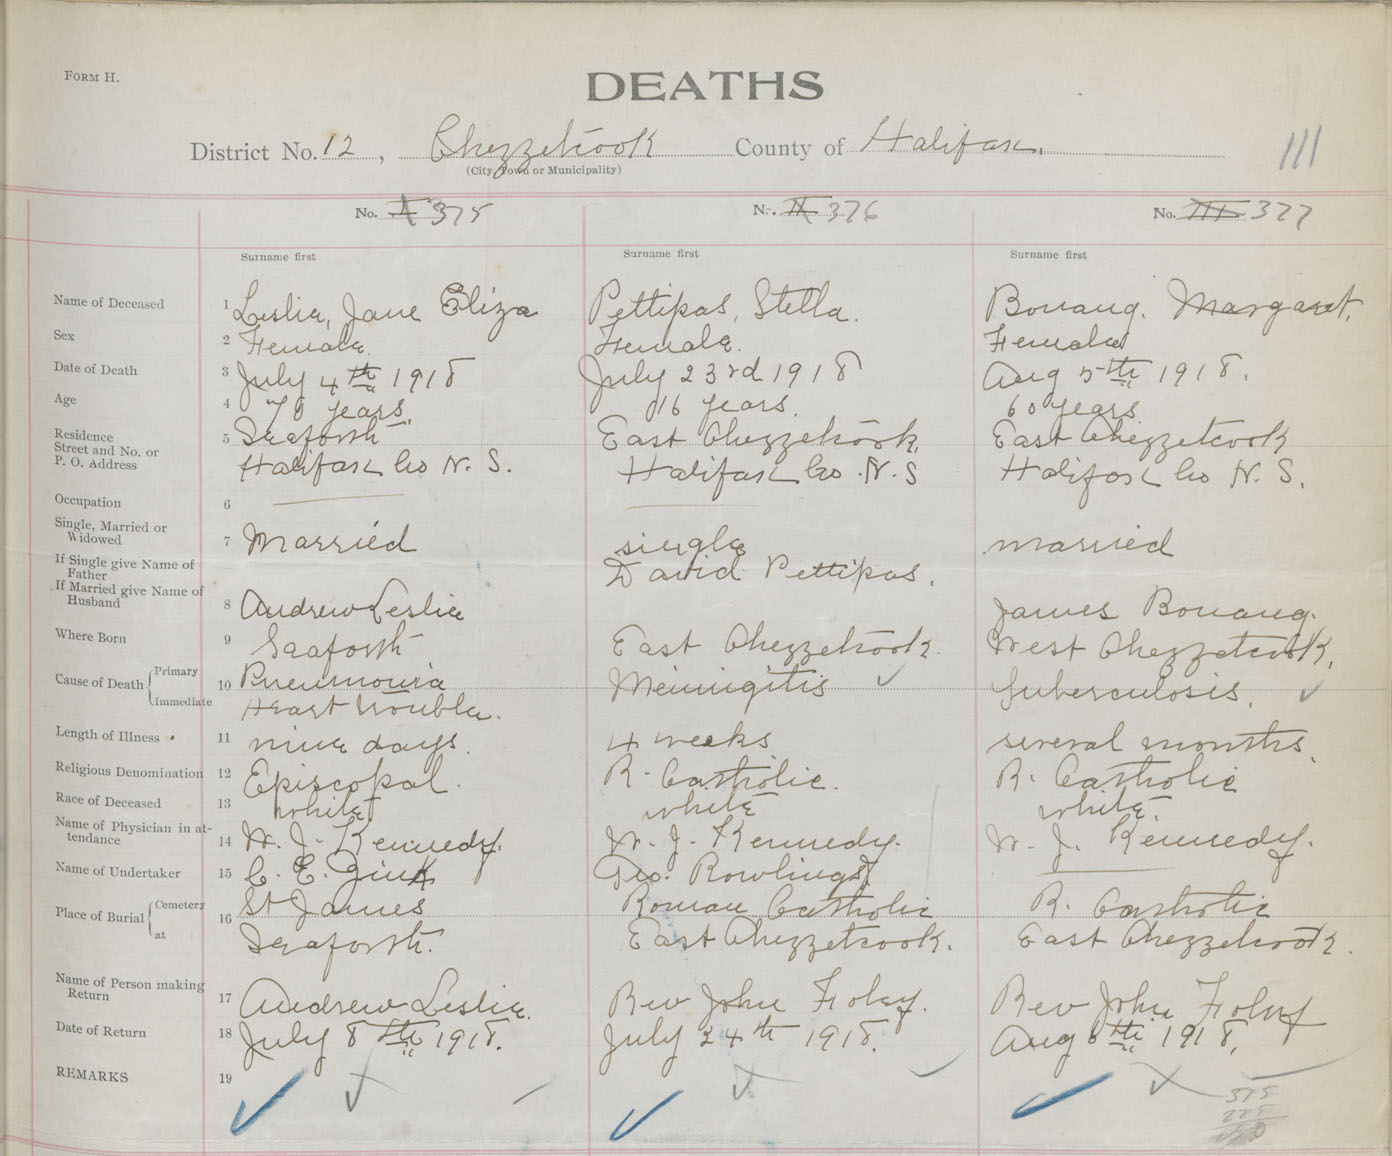 FORM H.
DEATHS
111
District No. 12, Chezzetcook County of Halifax.
(City Town or Municipality)
No. I 375 No. II 376 No. III 377
Surname first Surname first Surname first
Name of Deceased 1 Leslie, Jane Eliza Pettipas, Stella. Bonang. Margaret.
Sex 2 Female. Female. Female
Date of Death 3 July 4th 1918 July 23rd 1918 Aug 5th 1918.
Age 4 years. 16 years. 60 years
Residence 5 Seaforth East Chezzetcook, East Chezzetcook
Street and No. or
P. O. Address Halifax Co N. S. Halifax Co. N. S Halifax Co N. S.
Occupation 6
Single, Married or
Widowed 7 Married single married
If Single give Name of
Father David Pettipas.
If Married give Name of
Husband 8 Andrew Leslie James Bonang.
Where Born 9 Seaforth East Chezzetcook. West Chezzetcook,
Cause of Death Primary 10 Pneumonia Meningitis Tuberculosis.
Immediate Heart trouble.
Length of Illness 11 nine days. 4 weeks several months.
Religious Denomination 12 Episcopal. R. Catholic. R. Catholic
Race of Deceased 13 white white white.
Name of Physician in at-
tendance 14 W. J. Kennedy. W. J. Kennedy. W. J. Kennedy.
Name of Undertaker 15 C. E. Zink Geo. Rowlings
Place of Burial Cemetery 16 St James Roman Catholic R. Catholic
at Seaforth. East Chezzetcook. East Chezzetcook.
Name of Person making
Return 17 Andrew Leslie. Rev John Foley. Rev John Foley
Date of Return 18 July 8th 1918. July 24th 1918. Aug 6th 1918.
REMARKS 19
375
225
150